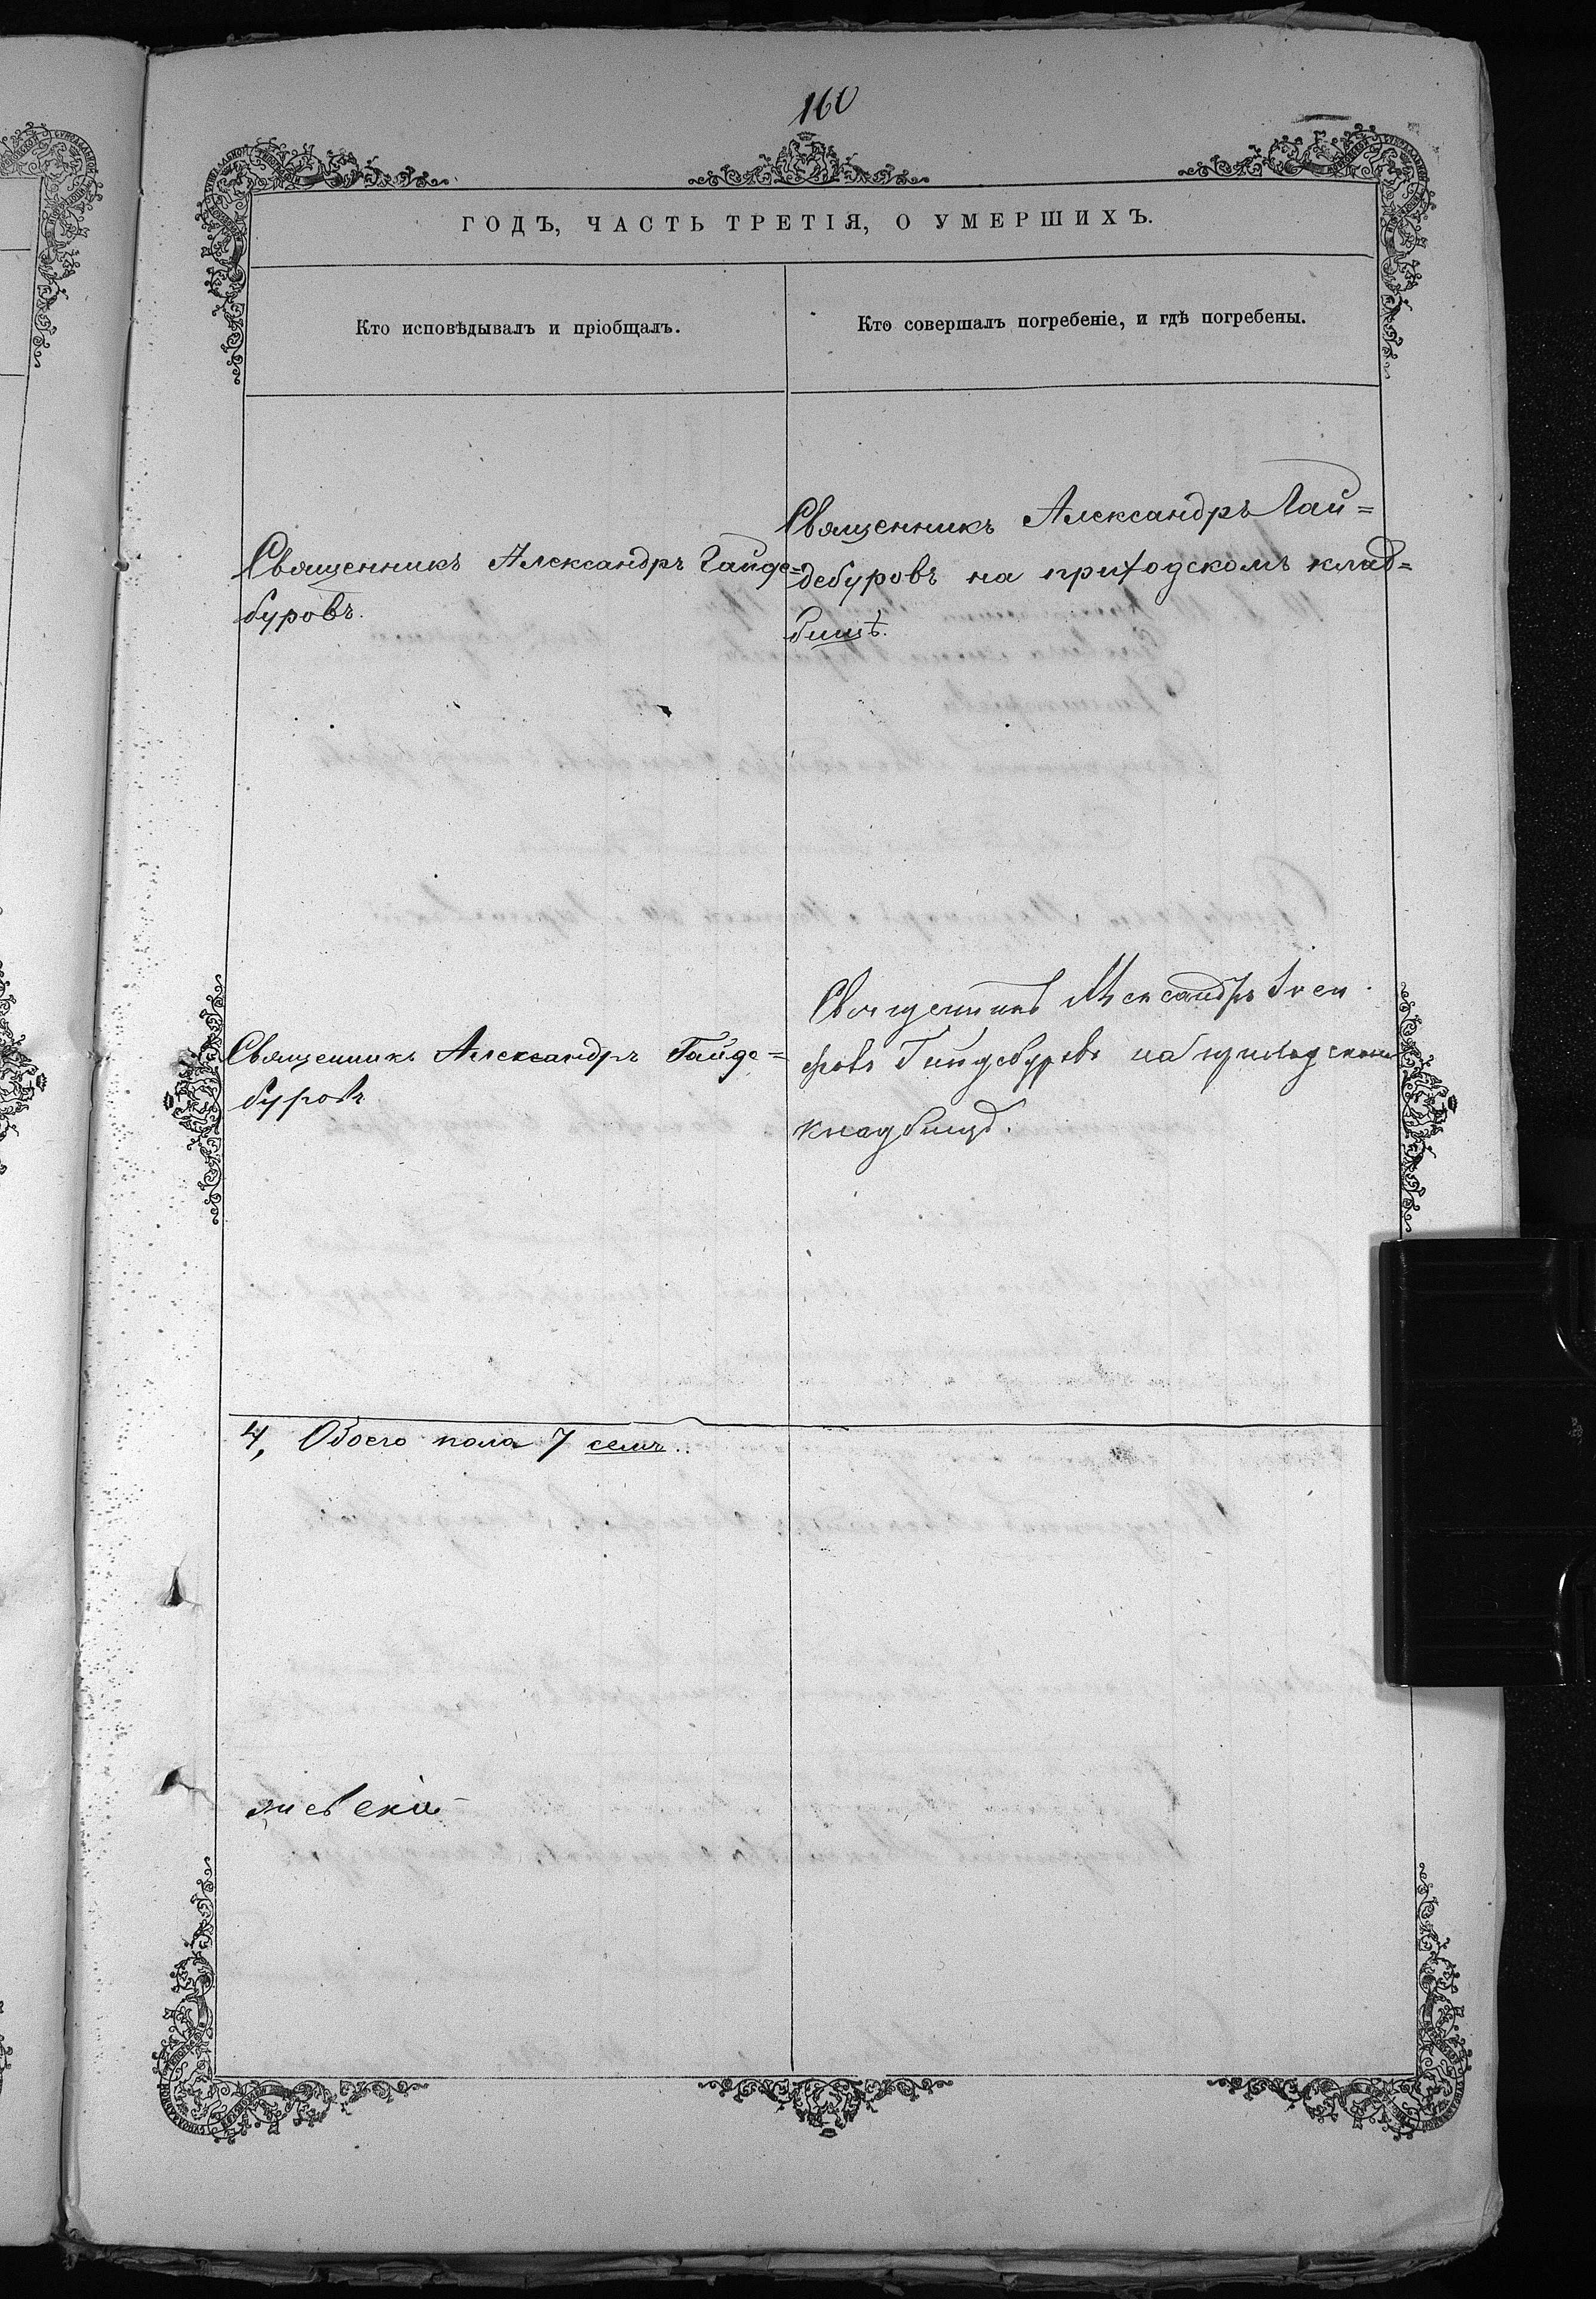 160
ГОДЪ, ЧАСТЬ ТРЕТІЯ, О УМЕРШИХЪ.
Кто исповѣдывалъ и пріобщалъ.
Кто совершалъ погребеніе, и гдѣ погребены.
Священникъ Александръ Гайде=
буровъ.
Священникъ Александръ Гай=
дебуровъ на приходскомъ клад=
бищѣ.
Священникъ Александръ Гайде=
буровъ
Священникъ Александръ
Гайдебуровъ на приходскомъ
кладбищѣ.
4, Обоего пола 7 семь.